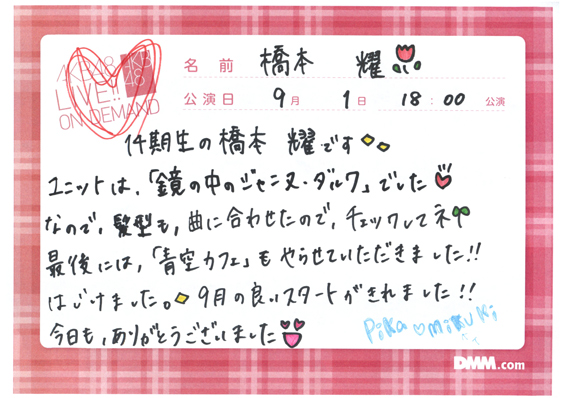 AKB48
LIVE!!
ON DEMAND
AKB48
名前 橋本 耀
公演日 9月 1日 18:00 公演
14期生の橋本 耀です
ユニットは、「鏡の中のジャンヌ・ダルク」でした
なので、髪型も、曲に合わせたので、チェックしてネ
最後には、「青空カフェ」もやらせていただきました!!
はじけました。9月の良いスタートがきれました!!
今日も、ありがとうございました
Pika♡mizuki
DMM.com